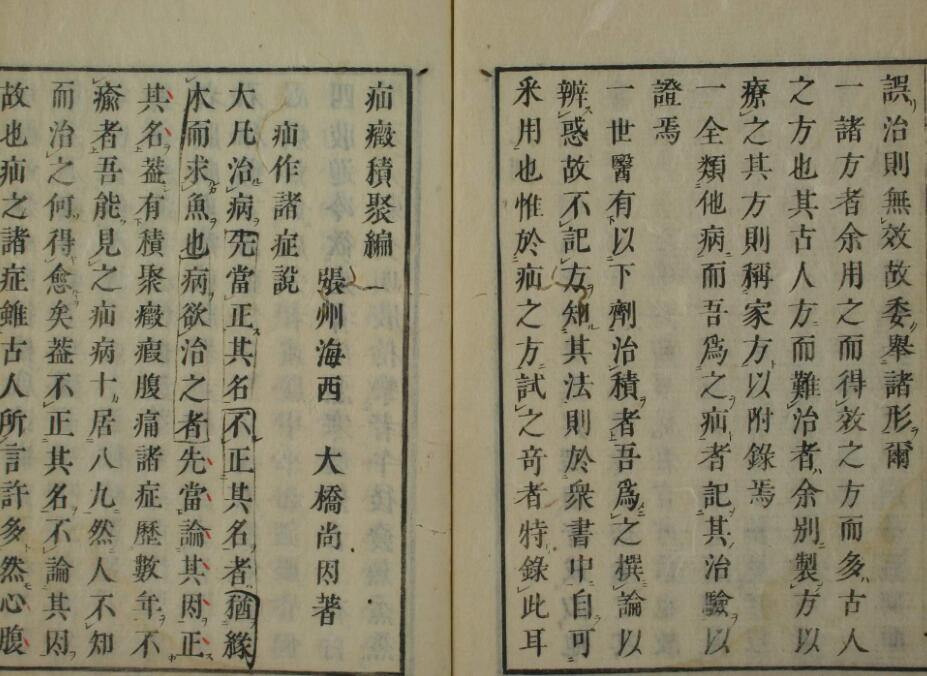 誤治則無效故委舉諸形爾
一諸方者余用之而得效之方而多古人
之方也其古人方而難治者余別製方以
療之其方則稱家方以附錄焉
一全類他病而吾爲之疝者記其治驗以
證焉
一世醫有以下劑治積者吾爲之撰論以
辨惑故不記方知其法則於衆書中自可
釆用也惟於疝之方試之奇者特錄此耳
疝癥積聚編
張州海西　大橋尚因著
疝作諸症說
大凡治病先當正其名不正其名者猶緣
木而求魚也病欲治之者先當論其因正
其名葢有積聚癥瘕腹痛諸症歷數年不
瘉者吾能見之疝病十居八九然人不知
而治之何得愈矣葢不正其名不論其因
故也疝之諸症雖古人所言許多然心腹